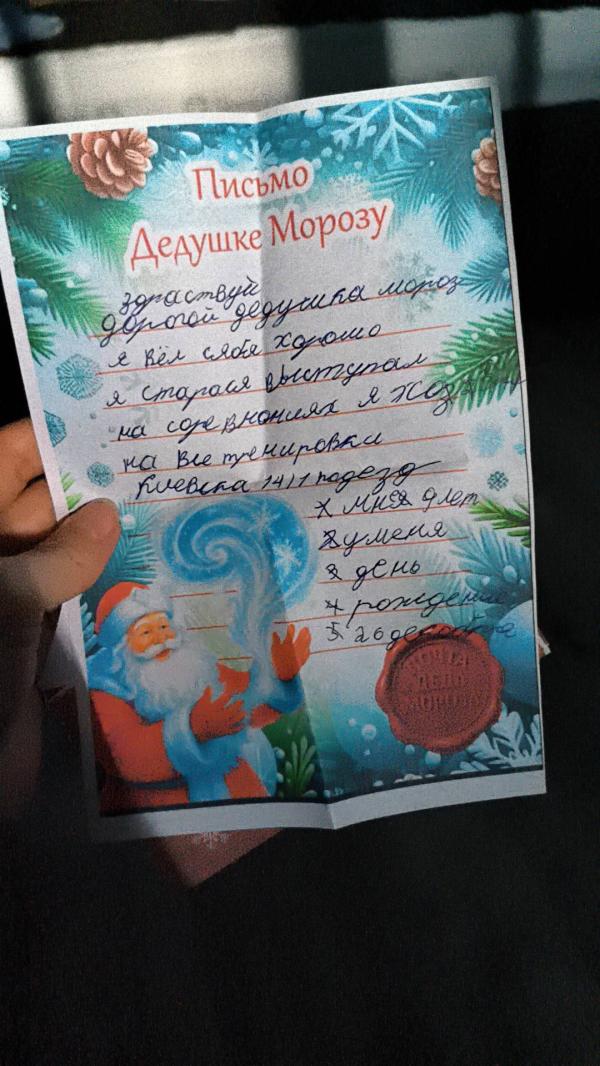 Письмо
Дедушке Морозу
здраствуй
дорогой дедушка мороз
я вёл сябя хорошо
я старося выступал
на соревнониях я
на все тренировки
Киевска 14/1 подезд
1 мне 9 лет
2 уменя
3 день
4 рождение
5 26 декабря
ПОЧТА
ДЕДА
МОРОЗА